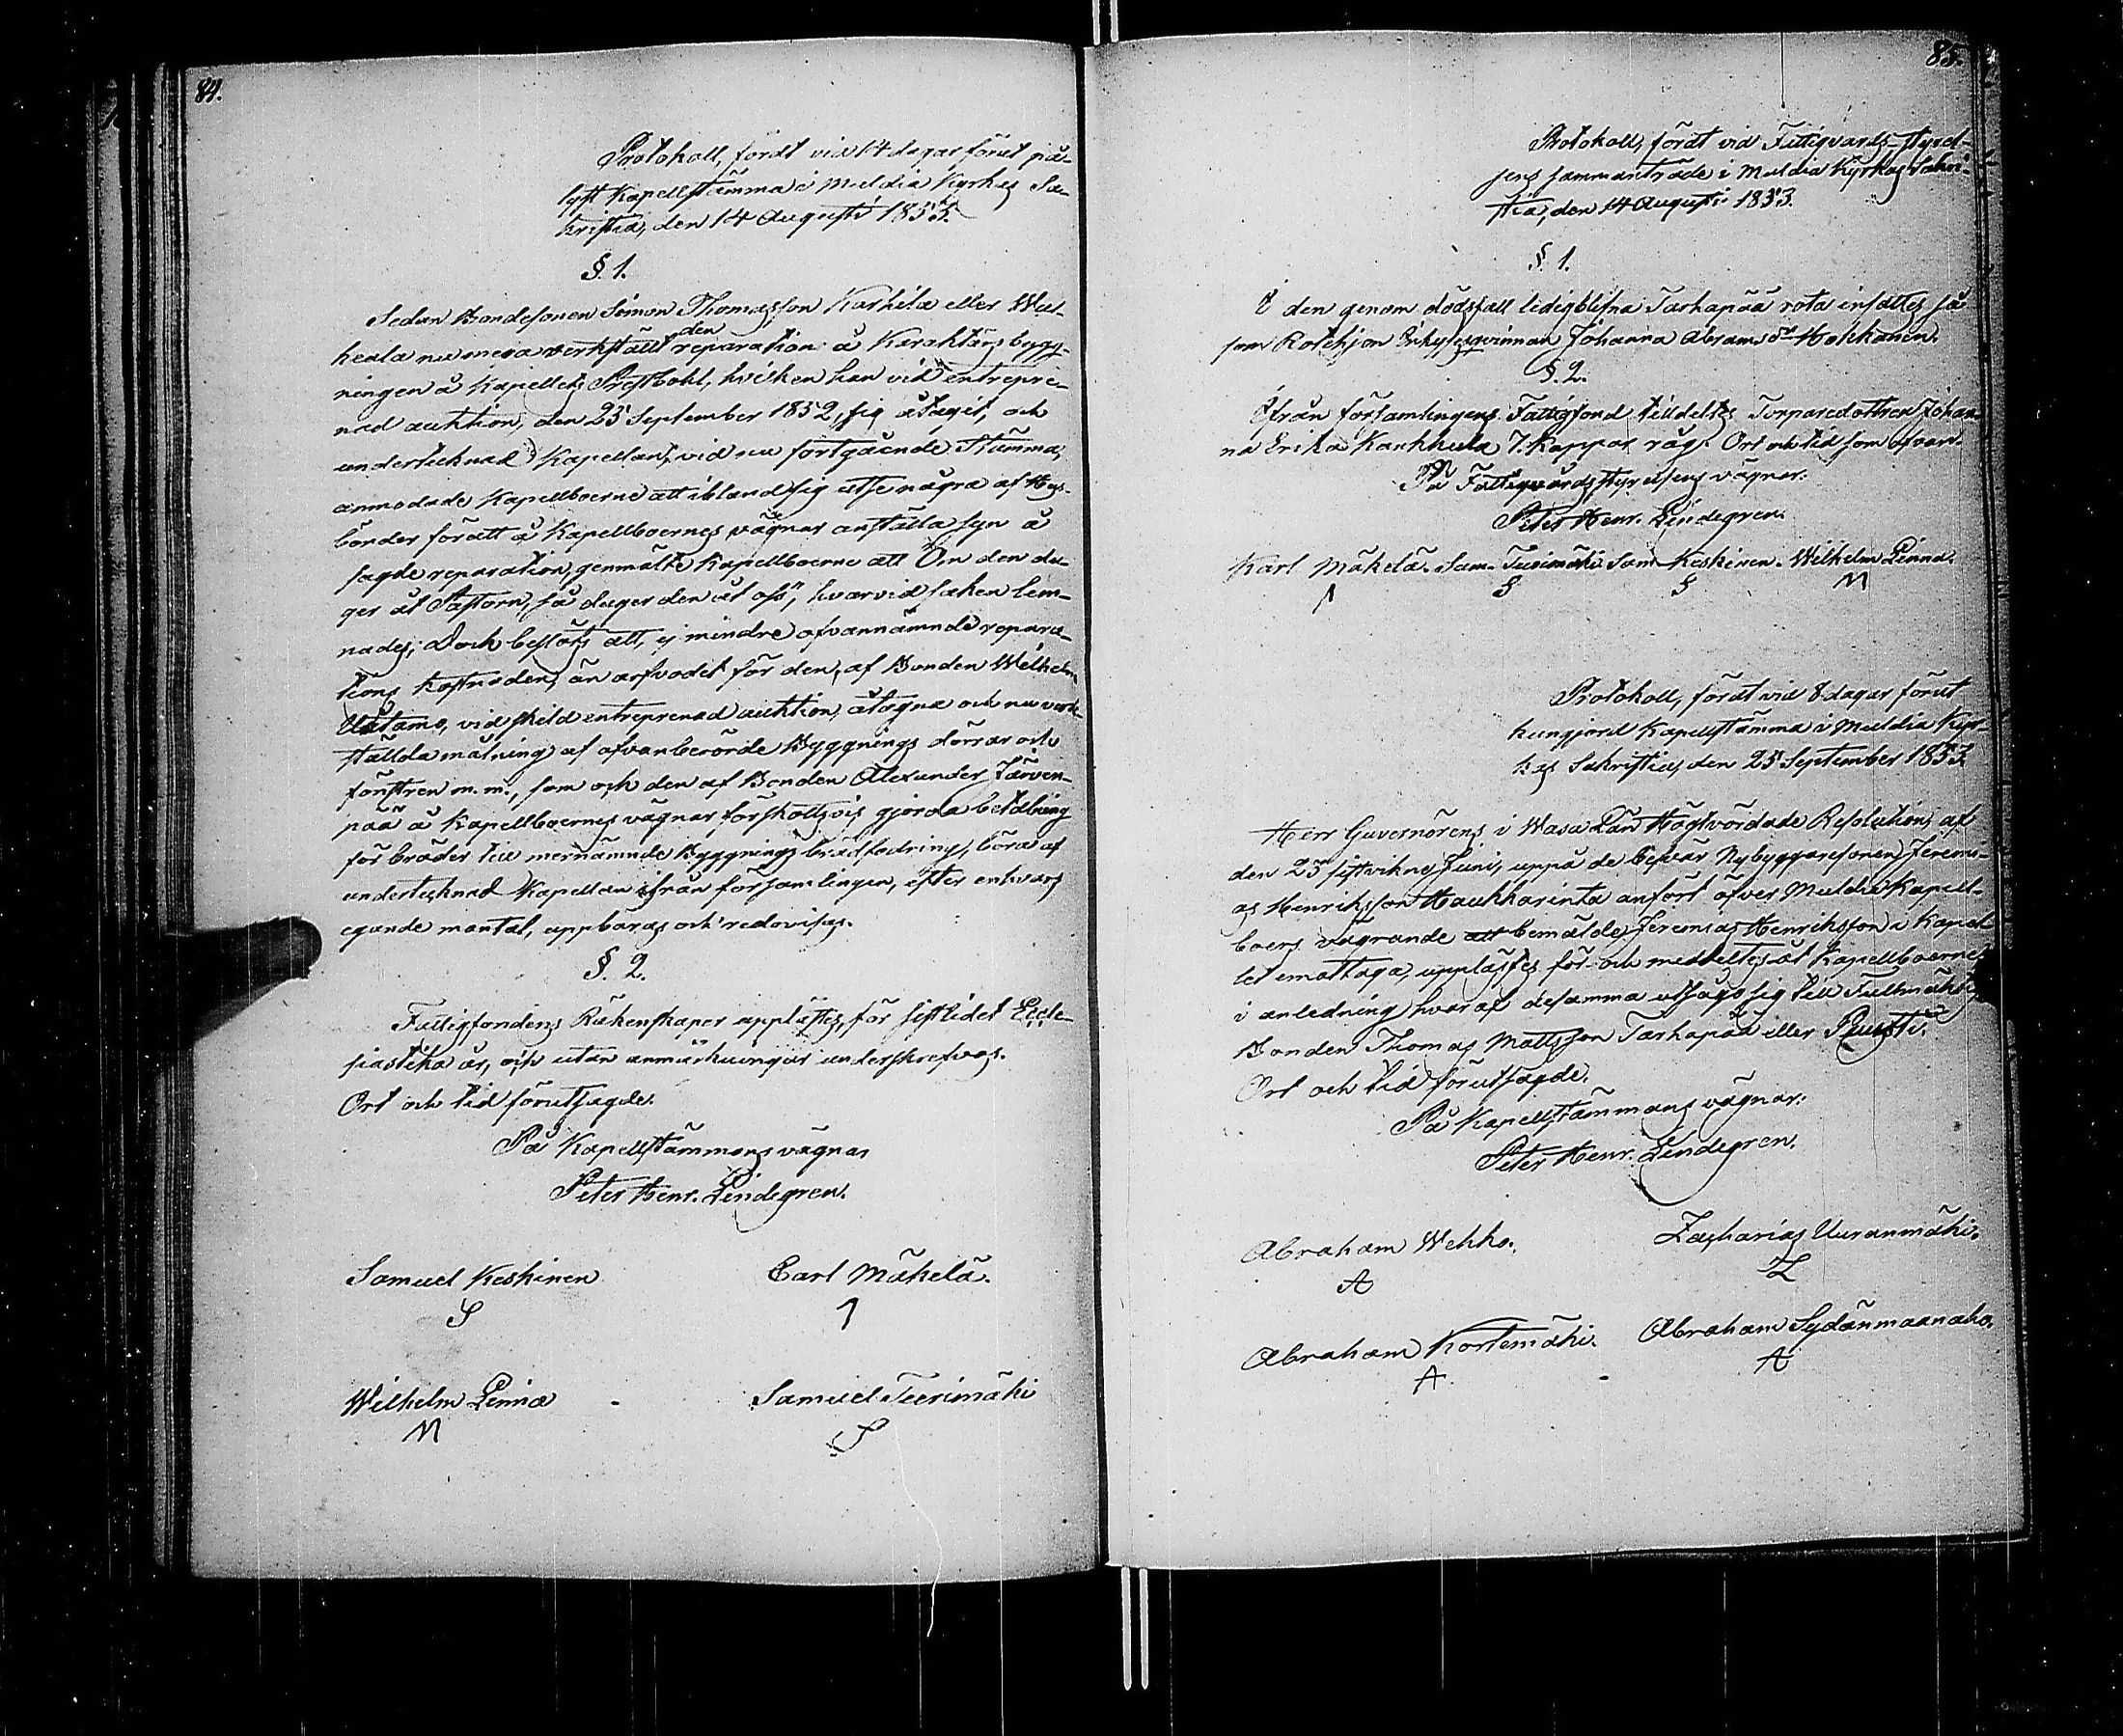 84.
Protokoll, fördt vid 14 dagar förut på-
lyst Kapellstämma i Muldia Kyrkas Sa-
kristia, den 14 Augusti 1853.
§. 1.
Sedan Bondesonen Simon Thomasson Karhila eller Wul-
heala numera verkställt den reparation å Karaktärs bygg-
ningen å Kapellets Prestbohl, hvilken han vid entrepre-
nad auktion, den 25 September 1852, sig åtagit, och
undertecknad Kapellan, vid nu fortgående Stämma,
anmodade Kapellboerne att ibland sig utse några af Hus-
bönder för att å Kapellboernes vägnar anställa syn å
sagde reparation, genmälte Kapellboerne att "Om den du-
ger åt Pastorn, så duger den åt oss", hvarvid saken lem-
nades; Dock beslöts att, ej mindre ofvannämnde repara-
tions kostnaden, än arfvodet för den, af Bonden Wilhelm
Uutamo, vid skild entreprenad auktion, åtagna och nu verk-
ställda målning af ofvanberörde Byggnings dörrar och
fönstren m. m., som och den af Bonden Alexander Järven-
pää å Kapellboernes vägnar förskottsvis gjorda betalning
för bräder till mernämnde Byggnings brädfodring, böra af
undertecknad Kapellan ifrån församlingen, efter enhvars
egande mantal, uppbäras och redovisas.
§. 2.
Fattigfondens Räkenskaper upplästes, för sistlidet Eccle-
siastika år, och utan anmärkningar underskrefvos.
Ort och tid förutsagde.
På Kapellstämmans vägnar
Peter Henr. Lindegren.
Samuel Keskinen Carl Mäkelä.
S 1
Wilhelm Linna Samuel Teerimäki
M S
85.
Protokoll, fördt vid Fattigvards-styrel-
sens sammanträde i Muldia Kyrkas Sakri-
stia, den 14 Augusti 1853.
§. 1.
I den genom dödsfall ledigblifna Tarhapää rota insattes så
som Rotehjon Inhyseqvinnan Johanna Abrams dr Hokkanen.
§. 2.
Ifrån församlingens Fattigfond tilldeltes Torparedottren Johan-
na Erika Kankkula 7. Kappar råg. Ort och tid som ofvan.
På Fattigvårdsstyrelsens vägnar:
Peter Henr. Lindegren.
Karl Mäkelä. Sam. Teerimäki Sam Keskinen. Wilhelm Linna.
1 S S M
Protokoll, fördt vid 8 dagar förut
kungjord Kapellstämma i Muldia Kyr-
kas Sakristia, den 25 September 1853
Herr Guvernörens i Wasa Län Högtvördade Resolution af
den 25 sistvikne Juni, uppå de besvär Nybyggaresonen Jeremi-
as Henriksson Haukkarinta anfört öfver Muldia Kapell-
boers vägrande att bemälde Jeremias Henriksson i Kapel-
let emottaga, upplästes för och meddeltes åt Kapellboerne,
i anledning hvaraf desamma utsågo sig till Fullmäktig
Bonden Thomas Mattsson Tarhapää eller Ruusti.
Ort och tid förutsagde.
På Kapellstämmans vägnar:
Peter Henr. Lindegren.
Abraham Wehko. Zacharias Uuranmäki.
A Z
Abraham Kortemäki. Abraham Sydänmaanaho.
A A